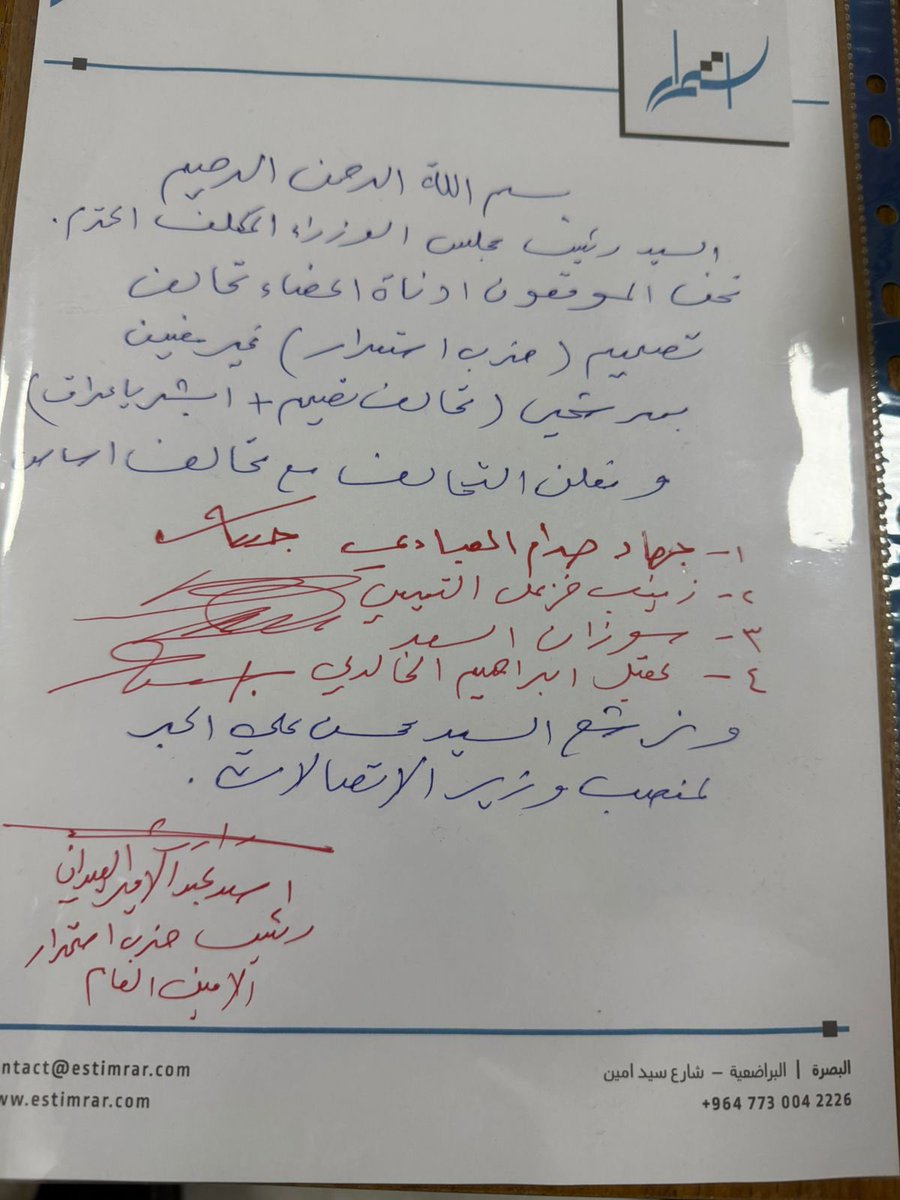 استمرار
بسم الله الرحمن الرحيم
السيد رئيس مجلس الوزراء المكلف المحترم.
نحن الموقعون ادناة اعضاء تحالف
تصميم (حزب استمرار) غير معنيين
بمرشحي (تحالف تصميم + ابشر يا عراق)
و نعلن التحالف مع تحالف اساس
١- جهاد صدام العبادي
٢- زينب خزعل التميمي
٣- سوزان السعد
٤- عقيل ابراهيم الخالدي
و نرشح السيد محسن علي
لمنصب وزير الاتصالات.
اسعد عبد الامير العيداني
رئيس حزب استمرار
الامين العام
البصرة | البراضعية – شارع سيد امين
ntact@estimrar.com
+964 773 004 2226
ww.estimrar.com